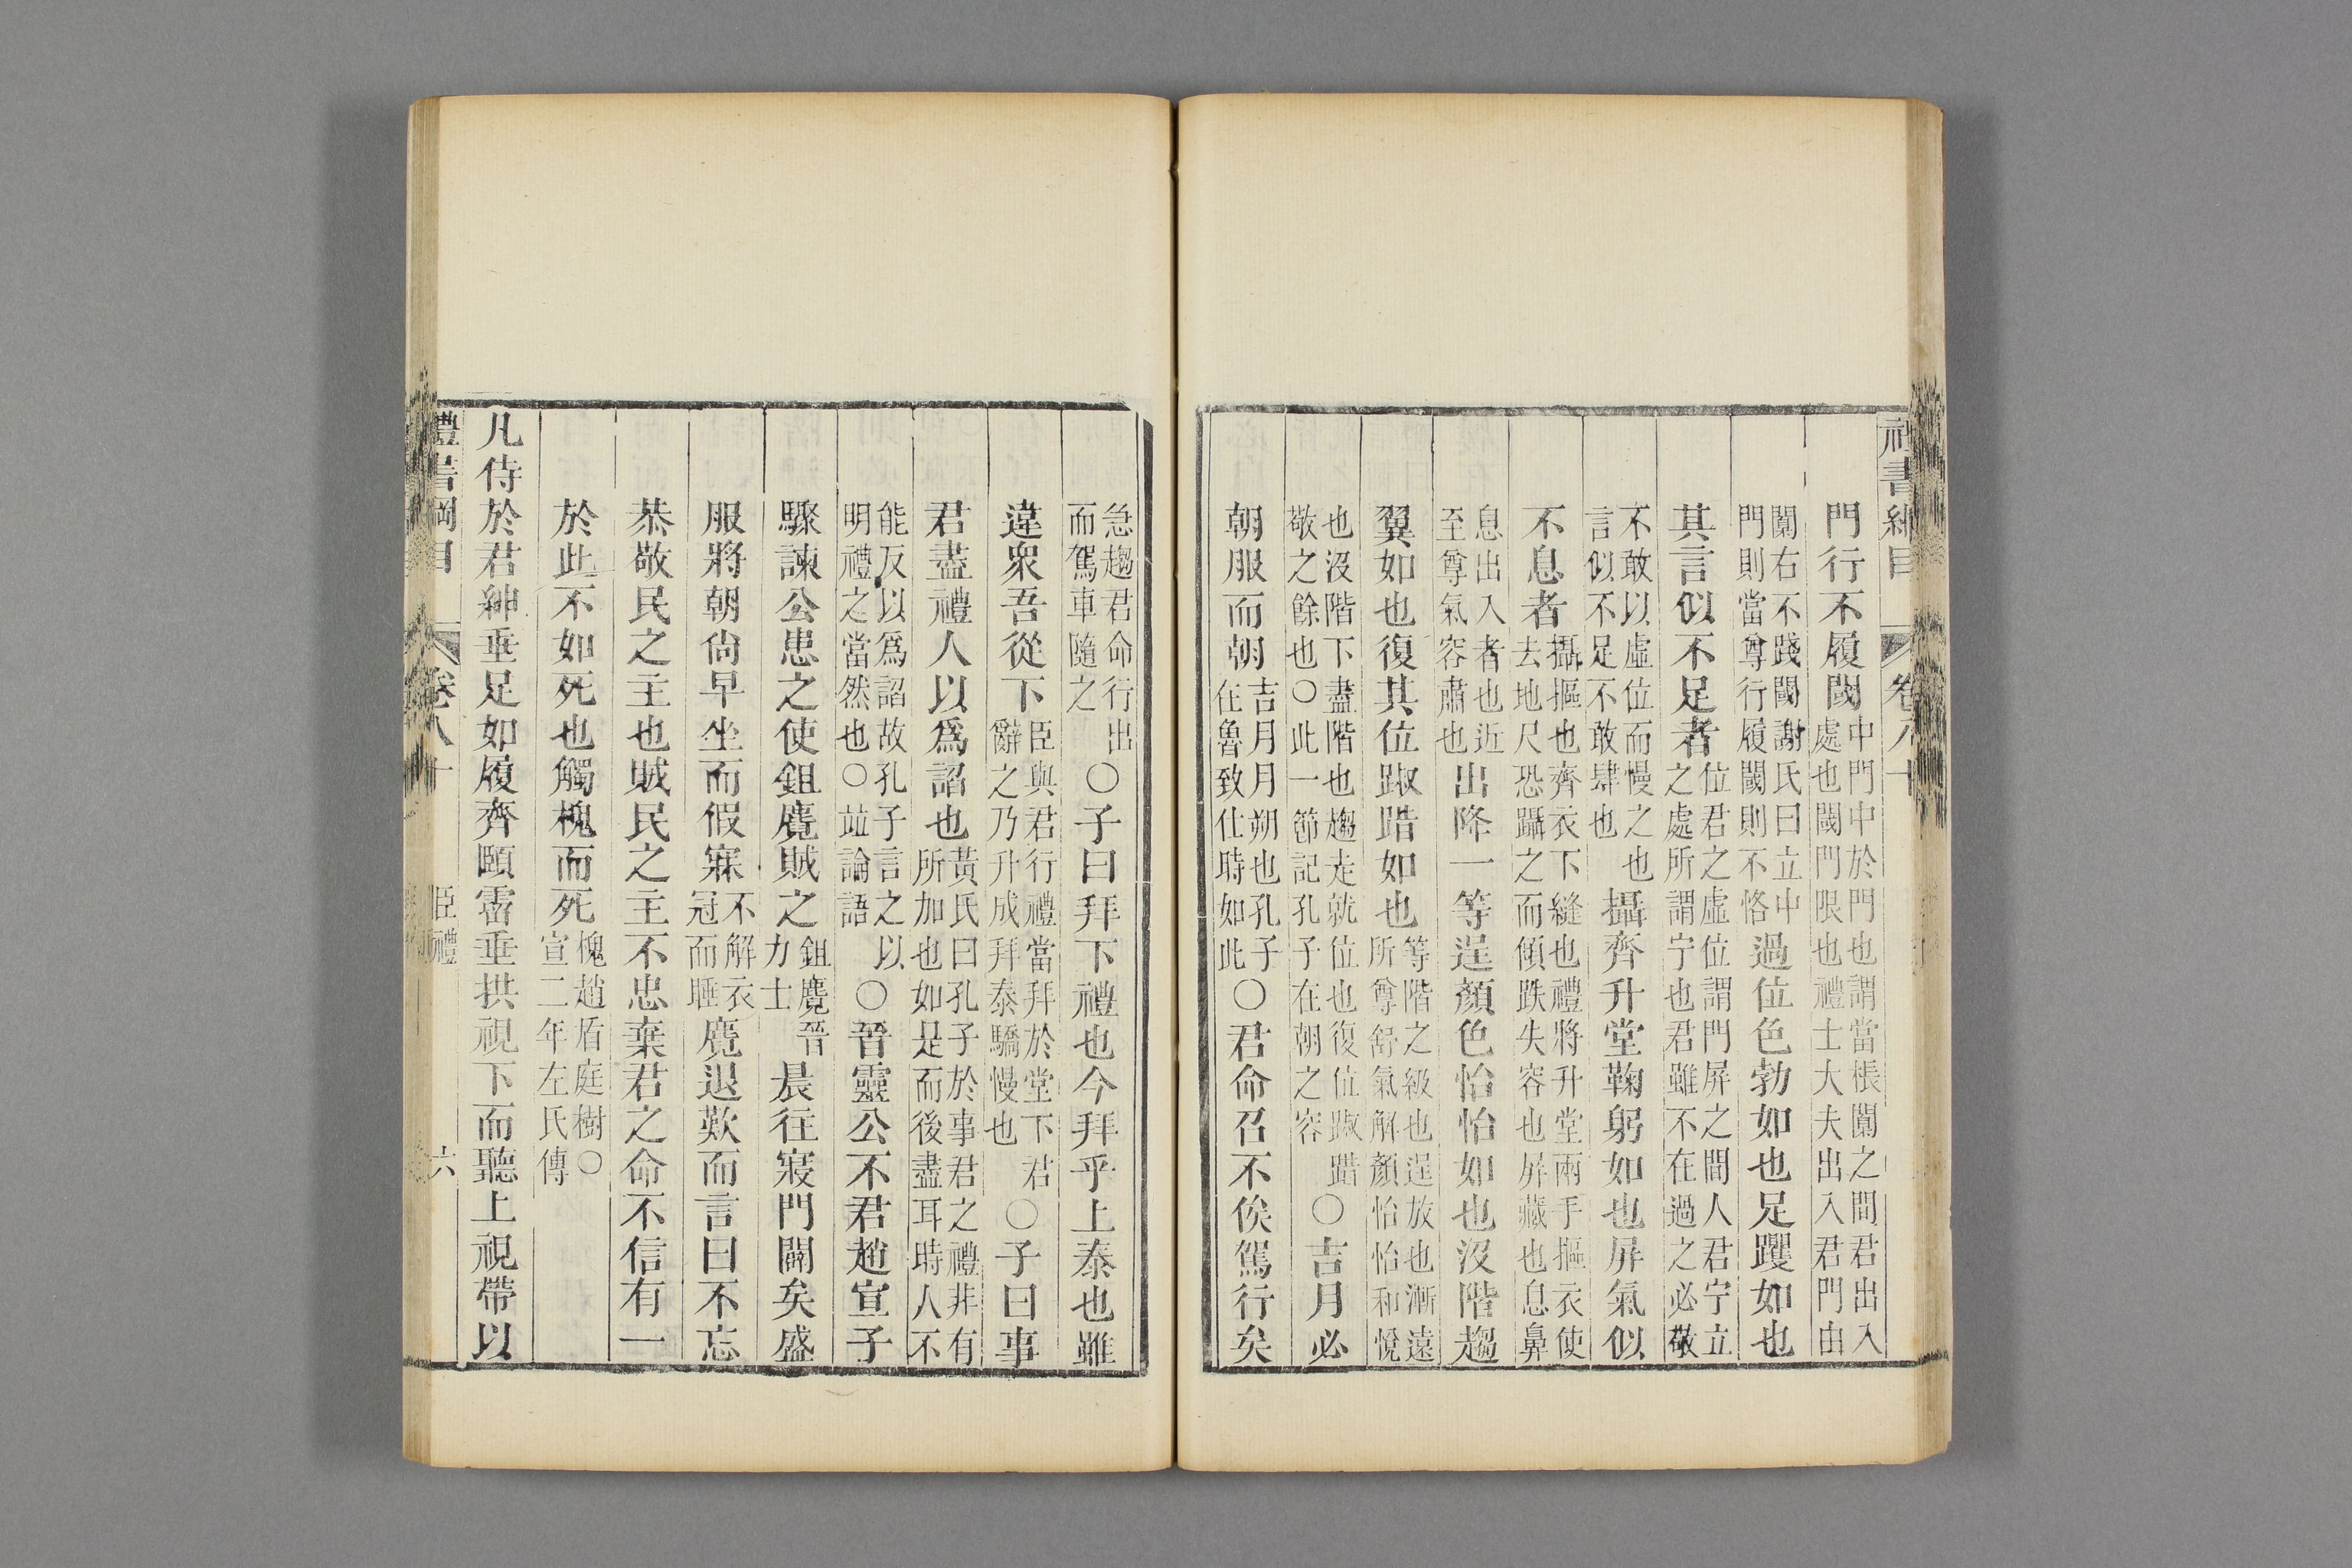 禮書綱目 卷八十
門行不履閾中門中於門也謂當棖闑之間君出入處也閾門限也禮士大夫出入君門由
闑右不踐閾謝氏曰立中門則當尊行履閾則不恪過位色勃如也足躩如也
其言似不足者位君之虛位謂門屏之間人君宁立之處所謂宁也君雖不在過之必敬
不敢以虛位而慢之也言似不足不敢肆也攝齊升堂鞠躬如也屏氣似
不息者攝摳也齊衣下縫也禮將升堂兩手摳衣使去地尺恐躡之而傾跌失容也屏藏也息鼻
息出入者也近至尊氣容肅也出降一等逞顏色怡怡如也沒階趨
翼如也復其位踧踖如也等階之級也逞放也漸遠所尊舒氣解顏怡怡和悅
也沒階下盡階也趨走就位也復位踧踖敬之餘也○此一節記孔子在朝之容○吉月必
朝服而朝吉月月朔也孔子在魯致仕時如此○君命召不俟駕行矣
急趨君命行出而駕車隨之○子曰拜下禮也今拜乎上泰也雖
違衆吾從下臣與君行禮當拜於堂下君辭之乃升成拜泰驕慢也○子曰事
君盡禮人以爲諂也黃氏曰孔子於事君之禮非有所加也如是而後盡耳時人不
能反以爲諂故孔子言之以明禮之當然也○竝論語○晉靈公不君趙宣子
驟諫公患之使鉏麑賊之鉏麑晉力士晨往寢門闢矣盛
服將朝尙早坐而假寐不解衣冠而睡麑退歎而言曰不忘
恭敬民之主也賊民之主不忠棄君之命不信有一
於此不如死也觸槐而死槐趙盾庭樹○宣二年左氏傳
凡侍於君紳垂足如履齊頤霤垂拱視下而聽上視帶以
禮書綱目 卷八十 臣禮 六